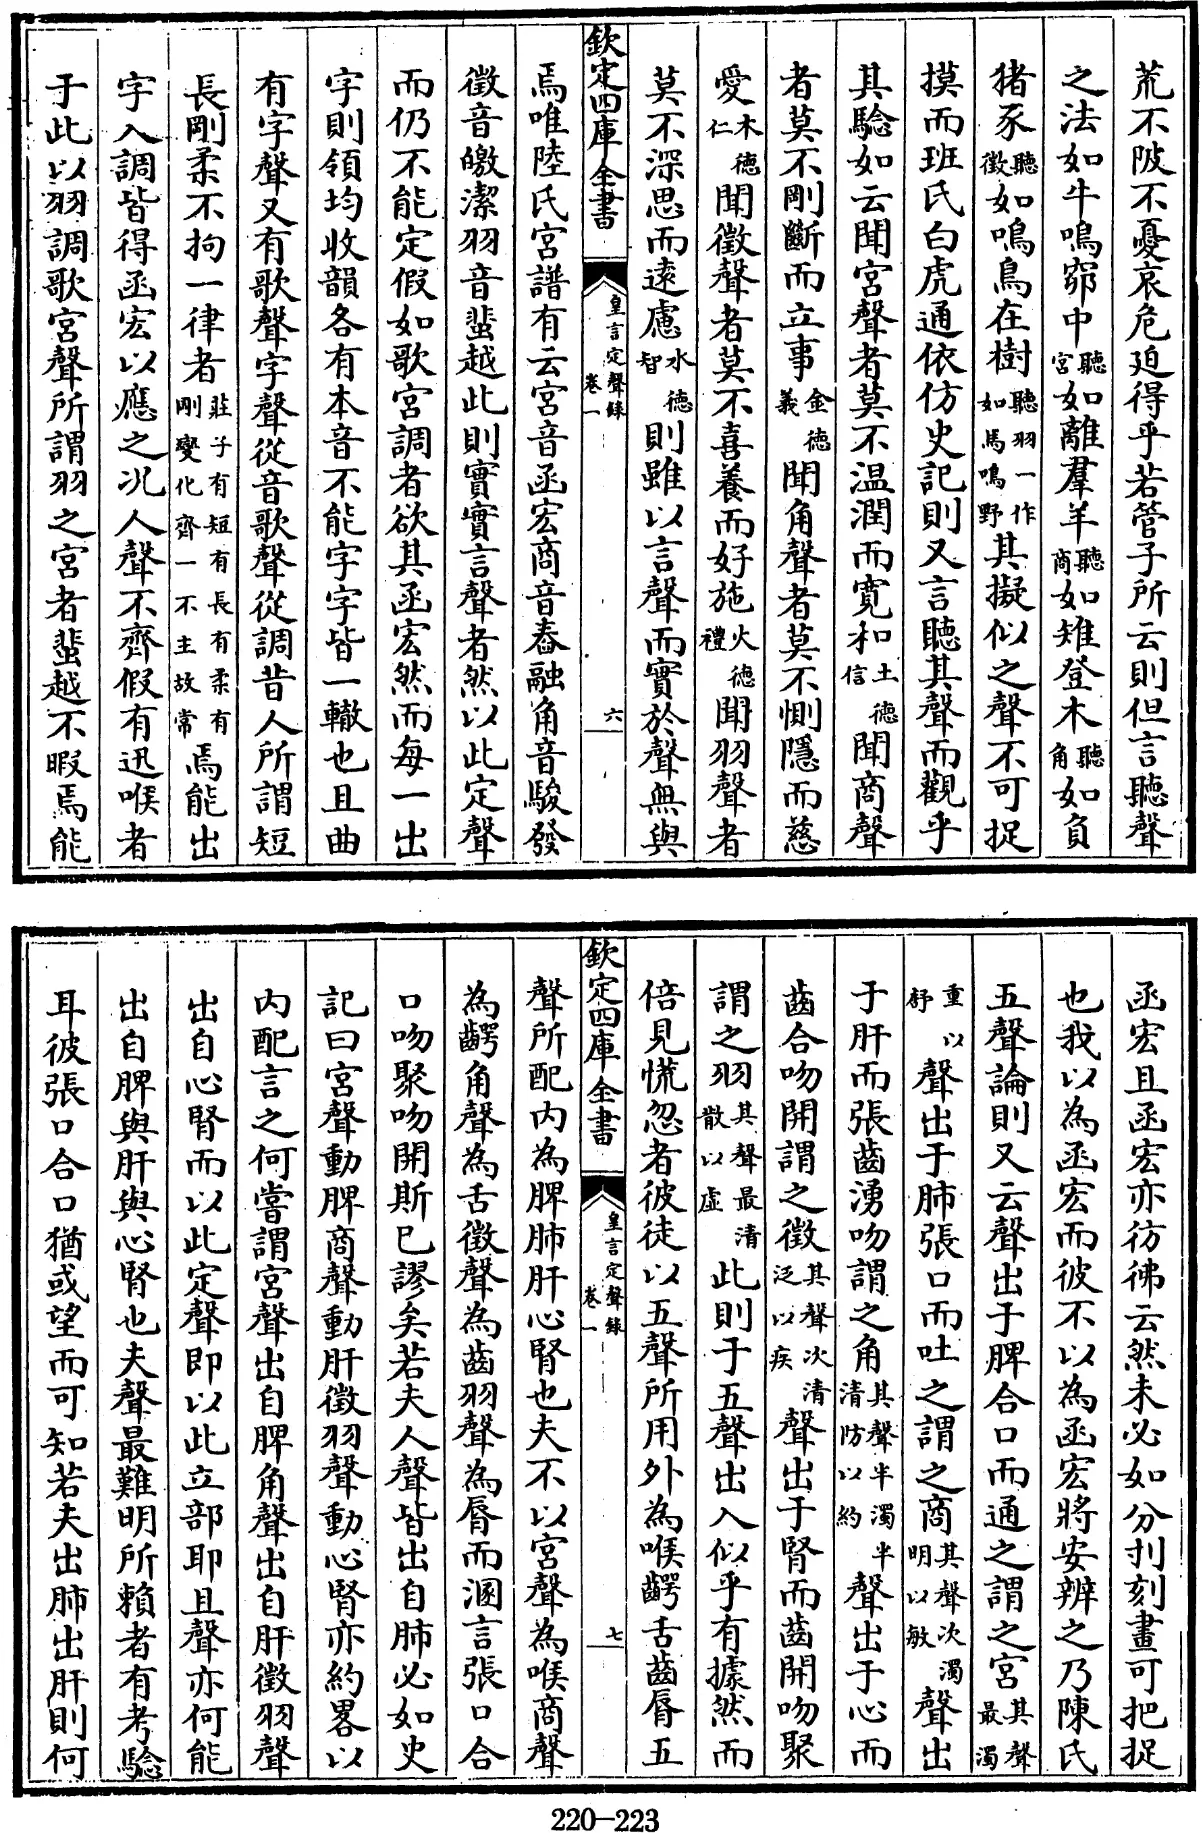 荒不陂不憂哀危迫得乎若管子所云則但言聽聲
之法如牛鳴窌中聽宮如離羣羊聽商如雉登木聽角如負
猪豕聽徵如鳴鳥在樹聽羽一作如馬鳴野其擬似之聲不可捉
摸而班氏白虎通依仿史記則又言聽其聲而觀乎
其驗如云聞宮聲者莫不温潤而寛和土德信聞商聲
者莫不剛斷而立事金德義聞角聲者莫不惻隱而慈
愛木德仁聞徵聲者莫不喜養而好施火德禮聞羽聲者
莫不深思而遠慮水德智則雖以言聲而實於聲無與
欽定四庫全書
皇言定聲錄
卷一
六
焉唯陸氏宮譜有云宮音函宏商音舂融角音駿發
徵音皦潔羽音蜚越此則實實言聲者然以此定聲
而仍不能定假如歌宮調者欲其函宏然而每一出
字則領均收韻各有本音不能字字皆一轍也且曲
有字聲又有歌聲字聲從音歌聲從調昔人所謂短
長剛柔不拘一律者莊子有短有長有柔有剛變化齊一不主故常焉能出
字入調皆得函宏以應之况人聲不齊假有迅喉者
于此以羽調歌宮聲所謂羽之宮者蜚越不暇焉能
函宏且函宏亦彷彿云然未必如分刌刻畫可把捉
也我以為函宏而彼不以為函宏將安辨之乃陳氏
五聲論則又云聲出于脾合口而通之謂之宮其聲最濁
重以舒聲出于肺張口而吐之謂之商其聲次濁明以敏聲出
于肝而張齒湧吻謂之角其聲半濁半清防以約聲出于心而
齒合吻開謂之徵其聲次清泛以疾聲出于腎而齒開吻聚
謂之羽其聲最清散以虛此則于五聲出入似乎有據然而
倍見慌忽者彼徒以五聲所用外為喉齶舌齒唇五
欽定四庫全書
皇言定聲錄
卷一
七
聲所配内為脾肺肝心腎也夫不以宮聲為喉商聲
為齶角聲為舌徵聲為齒羽聲為唇而溷言張口合
口吻聚吻開斯已謬矣若夫人聲皆出自肺必如史
記曰宮聲動脾商聲動肝徵羽聲動心腎亦約畧以
内配言之何嘗謂宮聲出自脾角聲出自肝徵羽聲
出自心腎而以此定聲即以此立部耶且聲亦何能
出自脾與肝與心腎也夫聲最難明所賴者有考驗
耳彼張口合口猶或望而可知若夫出肺出肝則何
220—223